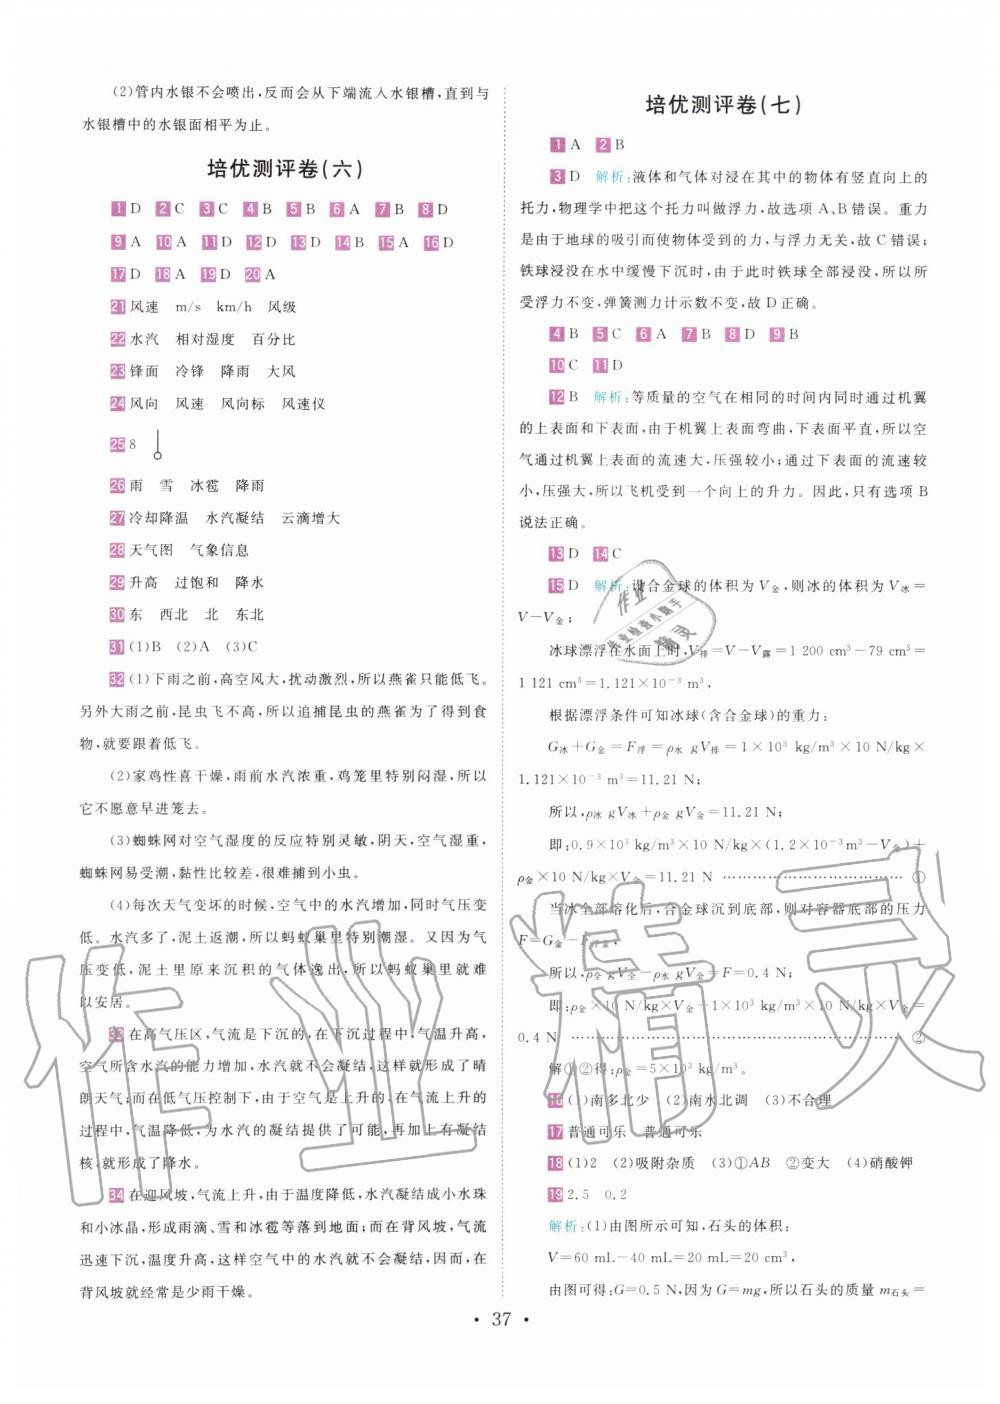 (2)管内水银不会喷出,反而会从下端流入水银槽,直到与
水银槽中的水银面相平为止。
培优测评卷(六)
1 D 2 C 3 C 4 B 5 B 6 A 7 B 8 D
9 A 10 A 11 D 12 D 13 D 14 B 15 A 16 D
17 D 18 A 19 D 20 A
21 风速 m/s km/h 风级
22 水汽 相对湿度 百分比
23 锋面 冷锋 降雨 大风
24 风向 风速 风向标 风速仪
25 8
26 雨 雪 冰雹 降雨
27 冷却降温 水汽凝结 云滴增大
28 天气图 气象信息
29 升高 过饱和 降水
30 东 西北 北 东北
31 (1)B (2)A (3)C
32 (1)下雨之前,高空风大,扰动激烈,所以燕雀只能低飞。
另外大雨之前,昆虫飞不高,所以追捕昆虫的燕雀为了得到食
物,就要跟着低飞。
(2)家鸡性喜干燥,雨前水汽浓重,鸡笼里特别闷湿,所以
它不愿意早进笼去。
(3)蜘蛛网对空气湿度的反应特别灵敏,阴天,空气湿度重,
蜘蛛网易受潮,黏性比较差,很难捕到小虫。
(4)每次天气变坏的时候,空气中的水汽增加,同时气压变
低。水汽多了,泥土返潮,所以蚂蚁巢里特别潮湿。又因为气
压变低,泥土里原来沉积的气体逸出,所以蚂蚁巢里就难
以安居。
33 在高气压区,气流是下沉的,在下沉过程中,气温升高,
空气所含水汽的能力增加,这样水汽就不会凝结,这样就形成了晴
朗天气;而在低气压控制下,由于空气是上升的,在气流上升的
过程中,气温降低,为水汽的凝结提供了可能,再加上有凝结
核,就形成了降水。
34 在迎风坡,气流上升,由于温度降低,水汽凝结成小水珠
和小冰晶,形成雨滴、雪和冰雹等落到地面;而在背风坡,气流
迅速下沉,温度升高,这样空气中的水汽就不会凝结,因而,在
背风坡就经常是少雨干燥。
培优测评卷(七)
1 A 2 B
3 D 解析:液体和气体对浸在其中的物体有竖直向上的
托力,物理学中把这个托力叫做浮力,故选项A、B错误。重力
是由于地球的吸引而使物体受到的力,与浮力无关,故C错误;
铁球浸没在水中缓慢下沉时,由于此时铁球全部浸没,所以所
受浮力不变,弹簧测力计示数不变,故D正确。
4 B 5 C 6 A 7 B 8 D 9 B
10 C 11 D
12 B 解析:等质量的空气在相同的时间内同时通过机翼
的上表面和下表面,由于机翼上表面弯曲,下表面平直,所以空
气通过机翼上表面的流速大,压强较小;通过下表面的流速较
小,压强大,所以飞机受到一个向上的升力。因此,只有选项B
说法正确。
13 D 14 C
15 D 解析:设合金球的体积为V金,则冰的体积为V冰=
V-V金;
冰球漂浮在水面上时,V排=V-V露=1 200 cm³-79 cm³=
1 121 cm³=1.121×10⁻³ m³,
根据漂浮条件可知冰球(含合金球)的重力:
G冰+G金=F浮=ρ水 gV排=1×10³ kg/m³×10 N/kg×
1.121×10⁻³ m³=11.21 N;
所以,ρ冰 gV冰+ρ金 gV金=11.21 N;
即:0.9×10³ kg/m³×10 N/kg×(1.2×10⁻³m³-V金)+
ρ金×10 N/kg×V金=11.21 N ……………………………… ①
当冰全部熔化后,合金球沉到底部,则对容器底部的压力
F=G金-F浮金,
所以,ρ金 gV金-ρ水 gV金=F=0.4 N;
即:ρ金×10 N/kg×V金-1×10³ kg/m³×10 N/kg×V金=
0.4 N ……………………………………………………… ②
解①②得:ρ金=5×10³ kg/m³。
16 (1)南多北少 (2)南水北调 (3)不合理
17 普通可乐 普通可乐
18 (1)2 (2)吸附杂质 (3)①AB ②变大 (4)硝酸钾
19 2.5 0.2
解析:(1)由图所示可知,石头的体积:
V=60 mL-40 mL=20 mL=20 cm³;
由图可得:G=0.5 N,因为G=mg,所以石头的质量 m石头=
• 37 •
作业精灵
作业
作业检查小助手
精灵